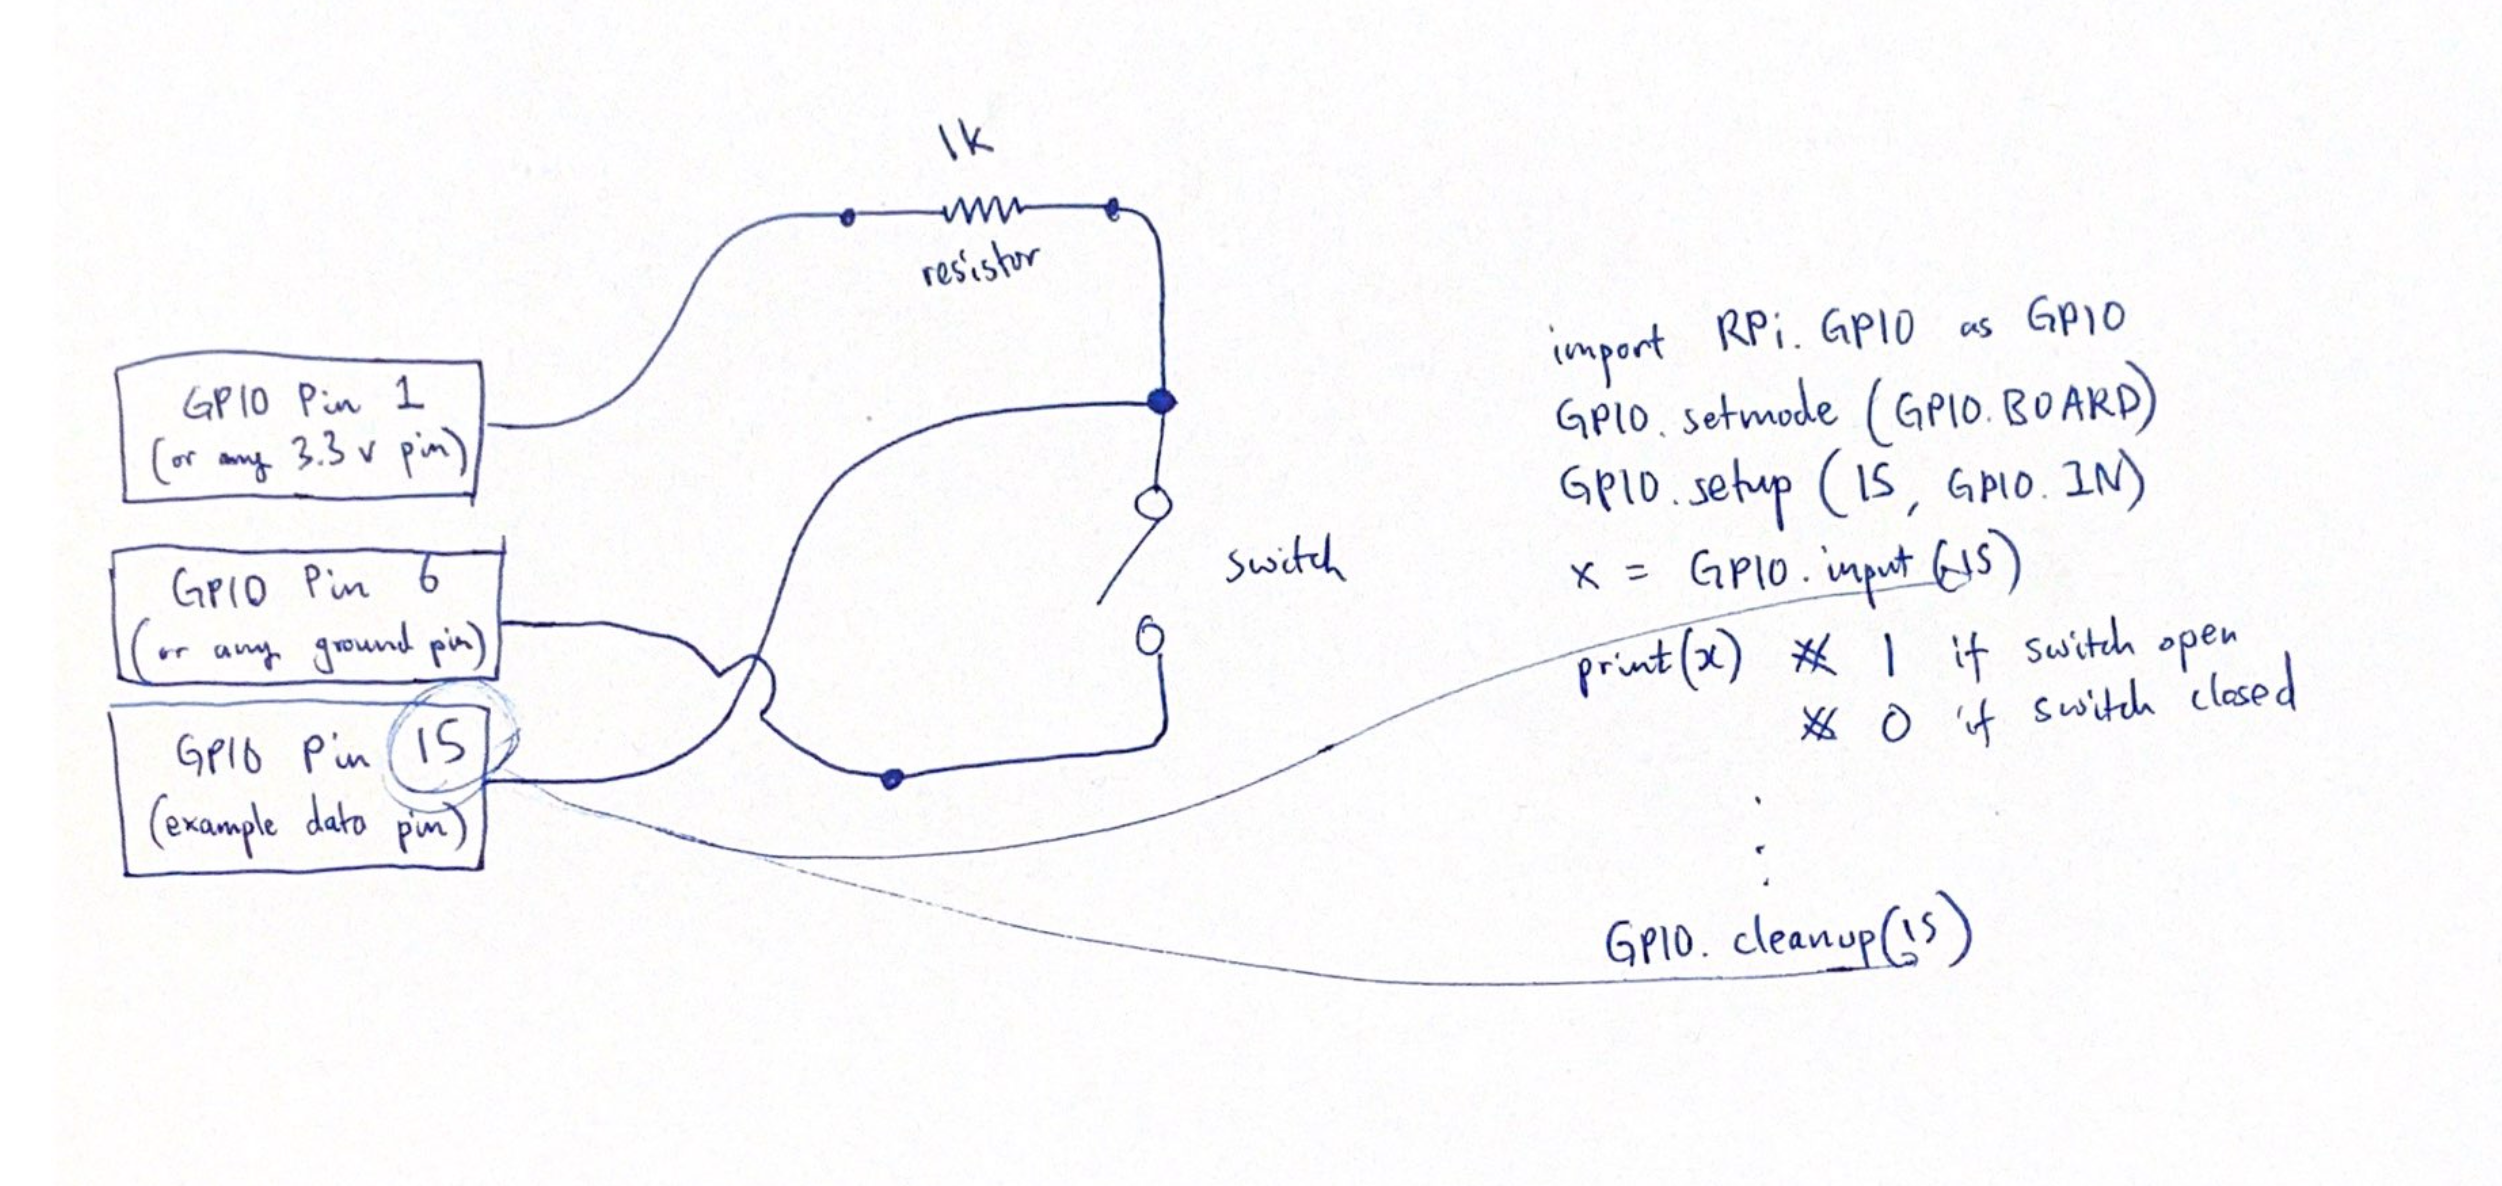 1k
resistor
GPIO Pin 1
(or any 3.3 v pin)
GPIO Pin 6
(or any ground pin)
GPIO Pin 15
(example data pin)
switch
import RPi.GPIO as GPIO
GPIO.setmode (GPIO.BOARD)
GPIO.setup (15, GPIO.IN)
x = GPIO.input (15)
print(x) # 1 if switch open
# 0 if switch closed
.
.
.
GPIO.cleanup(15)